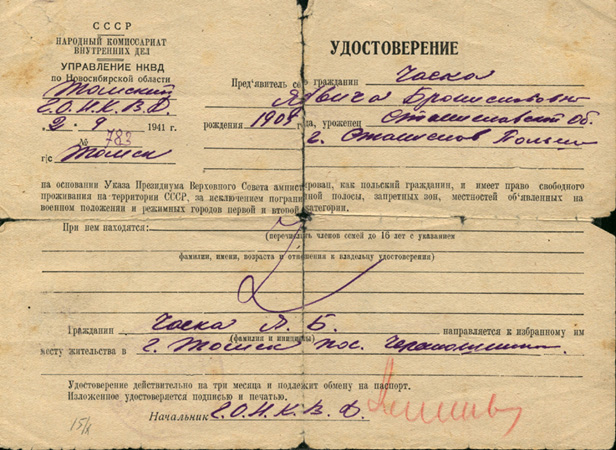 СССР
НАРОДНЫЙ КОМИССАРИАТ
ВНУТРЕННИХ ДЕЛ
УПРАВЛЕНИЕ НКВД
по Новосибирской области
Томский
Г.О.Н.К.В.Д.
2. 9 1941 г.
№ 783
г/с Томск
УДОСТОВЕРЕНИЕ
Пред'явитель сего гражданин Часка
Ядвига Брониславовна
рождения 1908 года, уроженец Станиславской об.
г. Станислов Польша
на основании Указа Президиума Верховного Совета амнистирован, как польский гражданин, и имеет право свободного
проживания на территории СССР, за исключением пограничной полосы, запретных зон, местностей об'явленных на
военном положении и режимных городов первой и второй категории.
При нем находятся:
(перечислить членов семьи до 16 лет с указанием
фамилии, имени, возраста и отношения к владельцу удостоверения)
Гражданин Часка Я. Б. направляется к избранному им
(фамилия и инициалы)
месту жительства в г. Томск пос. Черемошники
Удостоверение действительно на три месяца и подлежит обмену на паспорт.
Изложенное удостоверяется подписью и печатью.
Начальник Г.О.Н.К.В.Д.
15/X